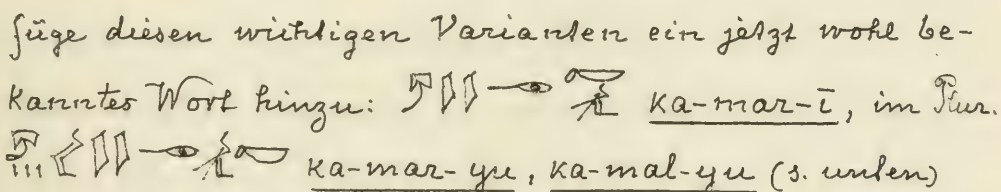 füge diesen wichtigen Varianten ein jetzt wohl be-
kanntes Wort hinzu: ka-mar-ī, im Plur.
ka-mar-yu, ka-mal-yu (s. unten)